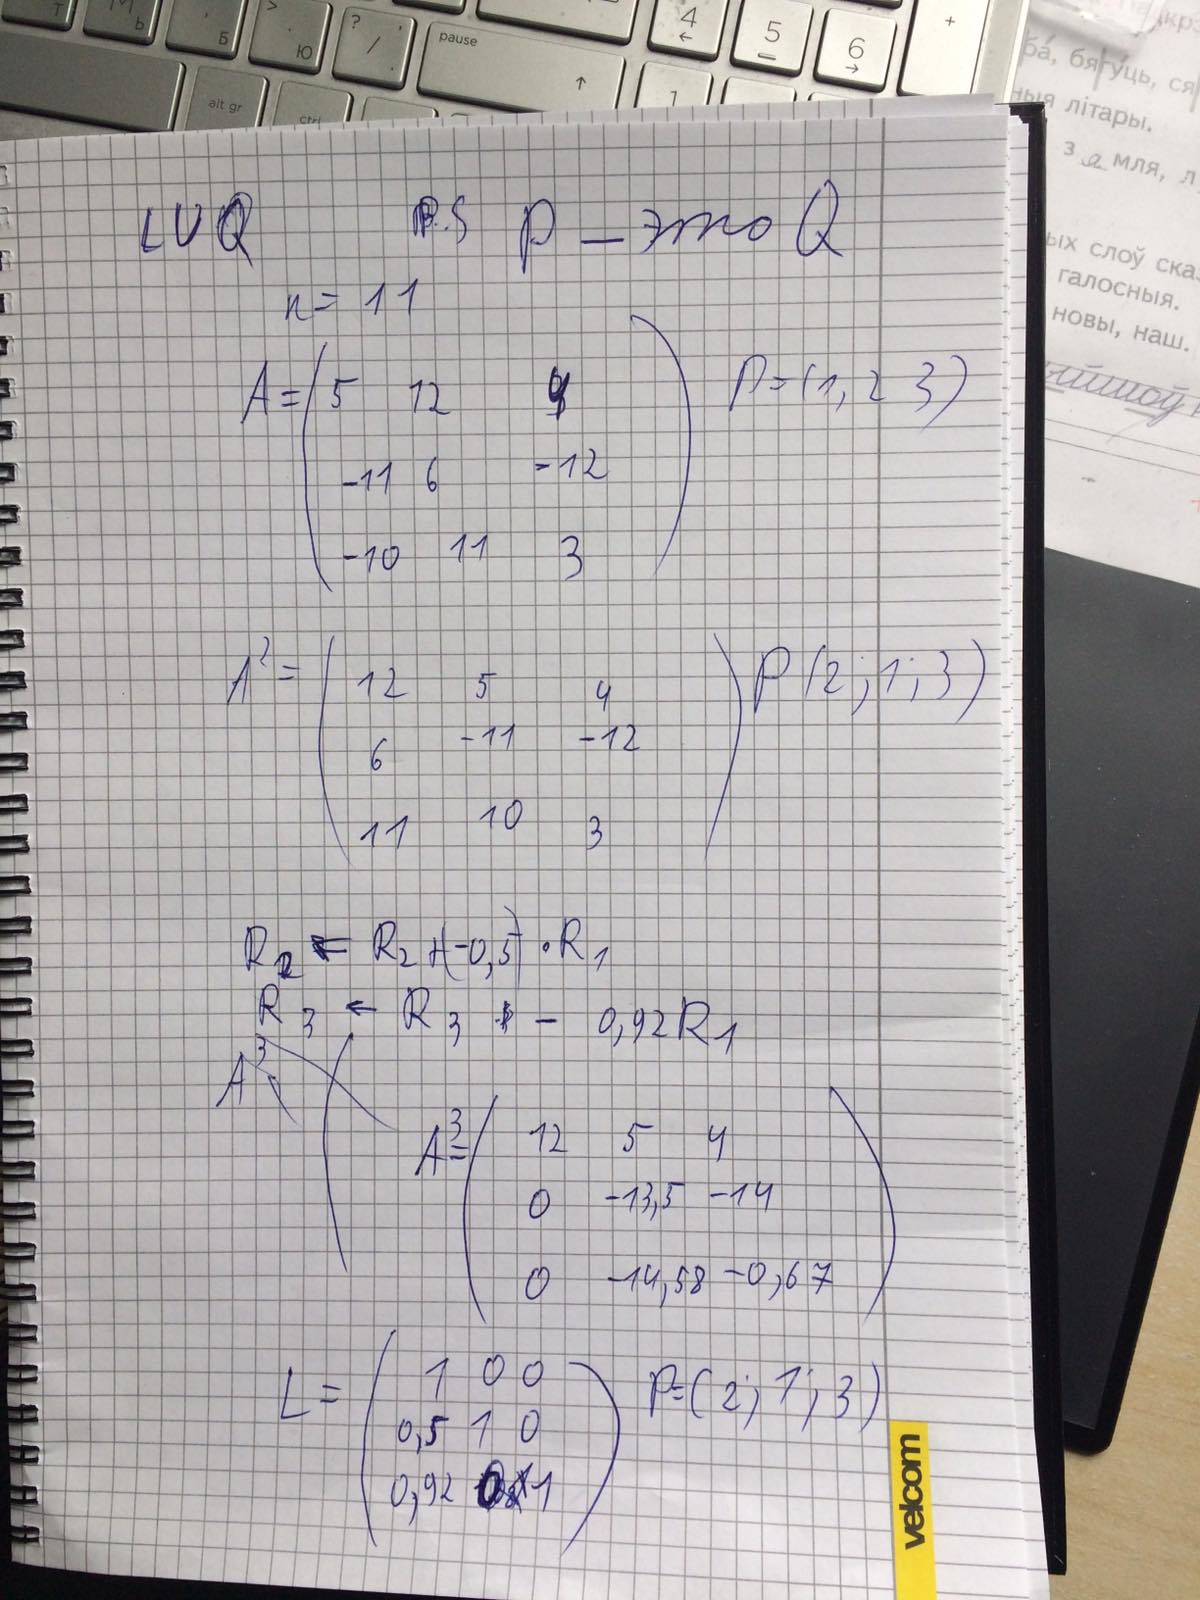 Б
Ю
? /
pause
alt gr
ctrl
4
5
6
+
1
ба́, бягу́ць, ся
ныя літары.
з а мля, л
ых слоў сказ
галосныя.
новы, наш.
LUQ P.S P – это Q
n = 11
A = ( 5 12 4 ) P = (1, 2 3)
-11 6 -12
-10 11 3
A² = ( 12 5 4 ) P (2; 1; 3)
6 -11 -12
11 10 3
R2 ← R2 + (-0,5) · R1
R3 ← R3 - 0,92R1
A³
A³ = ( 12 5 4 )
0 -13,5 -14
0 -14,58 -0,67
L = ( 1 0 0 ) P = (2; 1; 3)
0,5 1 0
0,92 0 1
velcom